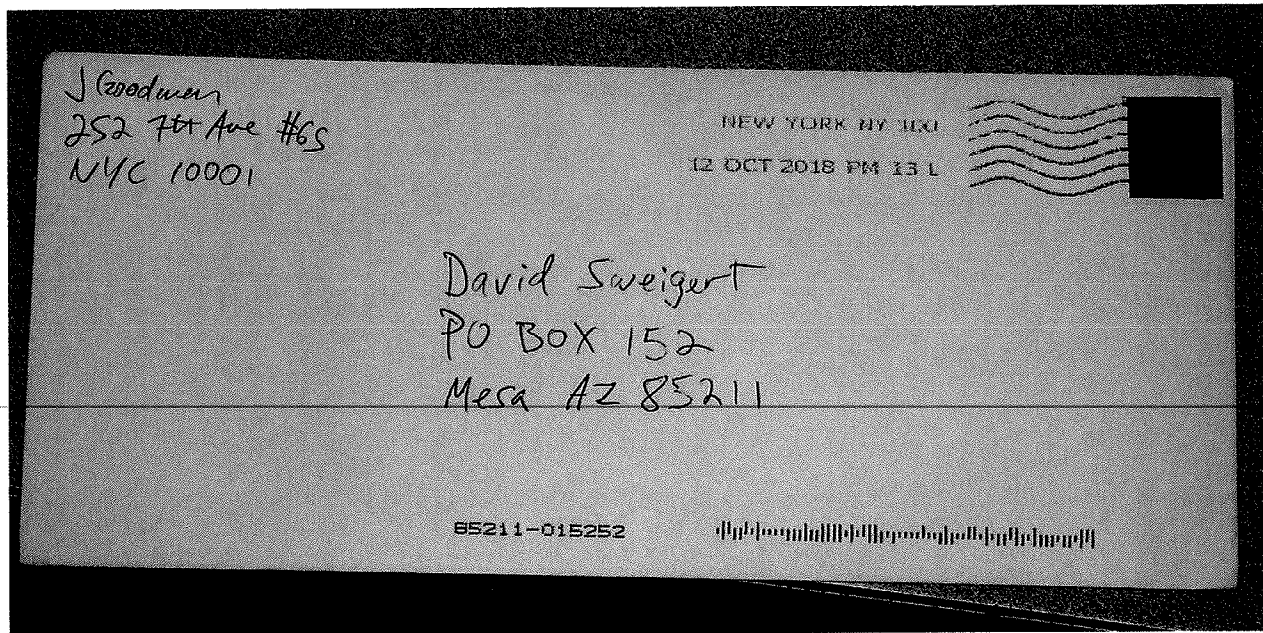 J Goodman
252 7th Ave #6S
NYC 10001
NEW YORK NY 100
12 OCT 2018 PM 13 L
David Sweigert
PO BOX 152
Mesa AZ 85211
85211-015252